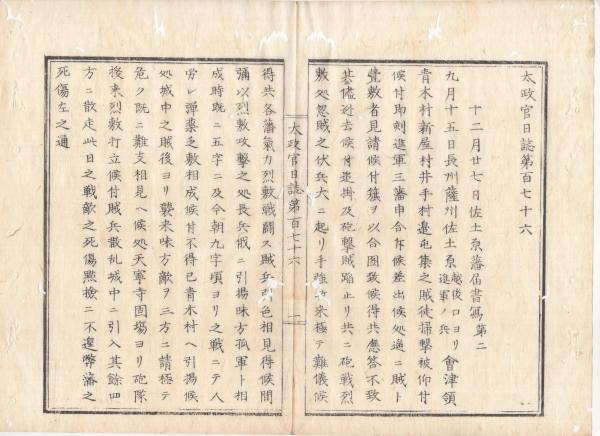 太政官日誌第百七十六
十二月廿七日佐土原藩届書寫第二
九月十五日長州薩州佐土原越後口ヨリ進軍ノ兵會津領
青木村新屋村井手村邉屯集之賊徒掃撃被仰付
候付即刻進軍三藩申合斥候差出候処遥ニ賊ト
覺敷者見請候付 ヲ以合圖致候得共應答不致
其儘逃去候付追掛及砲撃賊踏止リ共ニ砲戦烈
敷処忽賊之伏兵大ニ起リ手強 来極テ難儀候
太政官日誌第百七十六
一
得共各藩氣力烈敷戦闘ス賊兵 色相見得候間
彌以烈敷攻撃之処長兵俄ニ引揚味方孤軍ト相
成時既ニ五字ニ及今朝九字頃ヨリ之戦ニテ人
労レ弾薬乏敷相成候付不得已青木村ヘ引揚候
処城中之賊後ヨリ襲来味方敵ヲ三方ニ請極テ
危ク既ニ難支相見ヘ候処天寧寺固場ヨリ砲隊
後来烈敷打立候付賊兵散乱城中ニ引入其餘四
方ニ散走此日之戦敵之死傷點撿ニ不遑弊藩之
死傷左之通